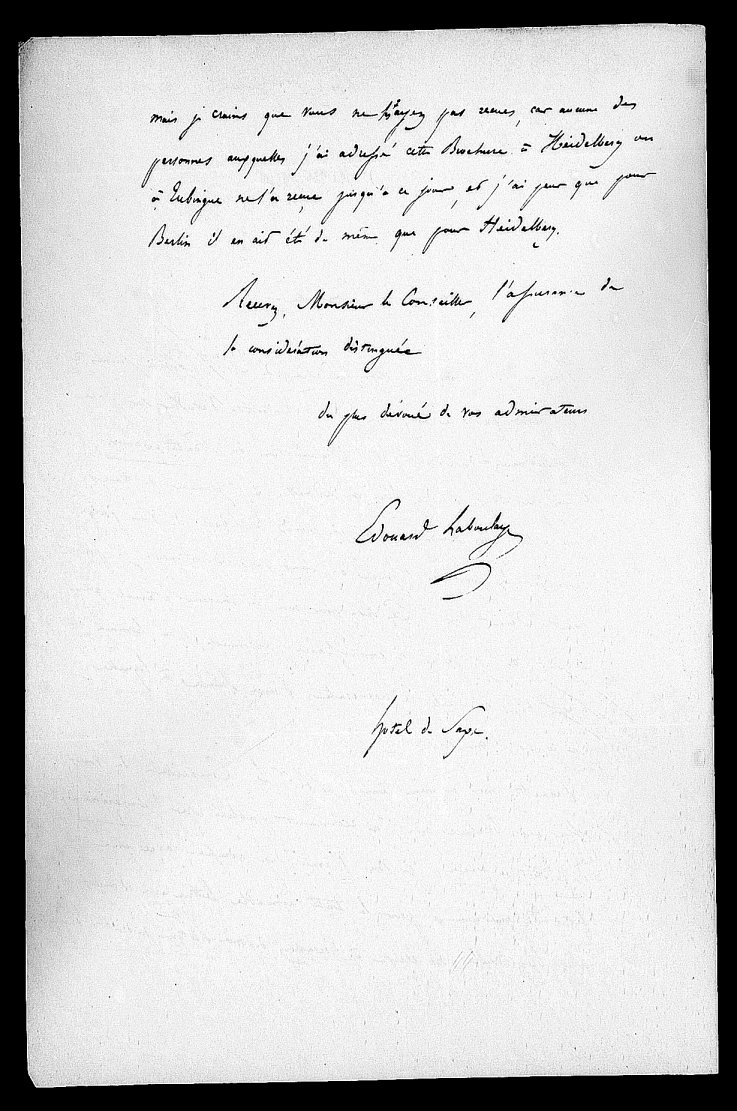 mais je crains que vous ne l'ayez pas reçue, car aucune des
personnes auxquelles j'ai adressé cette Brochure à Heidelberg ou
à Tubingue ne l'a reçue jusqu'à ce jour, et j'ai peur que pour
Berlin il en ait été de même que pour Heidelberg.
Recevez, Monsieur le Conseiller, l'assurance de
la considération distinguée
du plus dévoué de vos admirateurs
Edouard Laboulaye
hotel de Saxe.